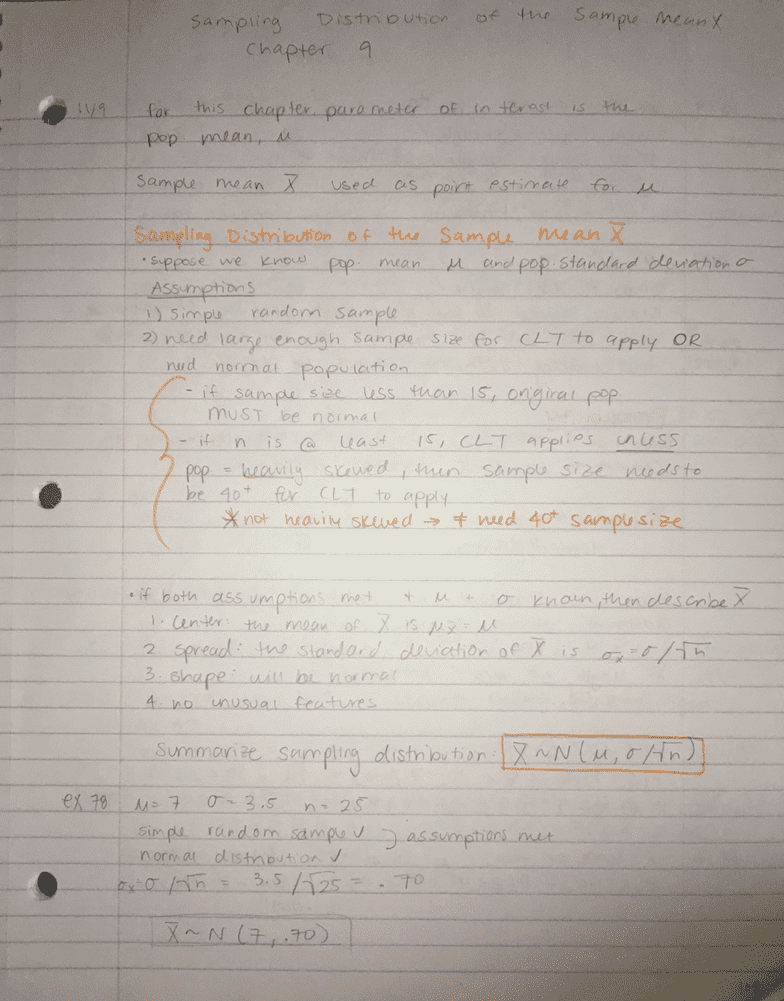 Sampling Distribution of the Sample Mean X̅
Chapter 9
11/9 for this chapter parameter of interest is the
pop mean, μ
Sample mean X̅ used as point estimate for μ
Sampling Distribution of the Sample Mean X̅
• suppose we know pop. mean μ and pop. standard deviation σ
Assumptions
1) simple random sample
2) need large enough sample size for CLT to apply OR
need normal population
- if sample size less than 15, original pop.
MUST be normal
- if n is @ least 15, CLT applies unless
pop. = heavily skewed, then sample size needs to
be 40+ for CLT to apply
* not heavily skewed → ≠ need 40+ sample size
• if both assumptions met + μ + σ known, then describe X̅
1. Center: the mean of X̅ is μx̅ = μ
2. spread: the standard deviation of X̅ is σx̅ = σ/√n
3. shape: will be normal
4. no unusual features
Summarize sampling distribution: X̅ ~ N (μ, σ/√n)
ex 78 μ = 7 σ = 3.5 n = 25
simple random sample ✓ } assumptions met
normal distribution ✓
σx̅ = σ/√n = 3.5/√25 = .70
X̅ ~ N (7, .70)